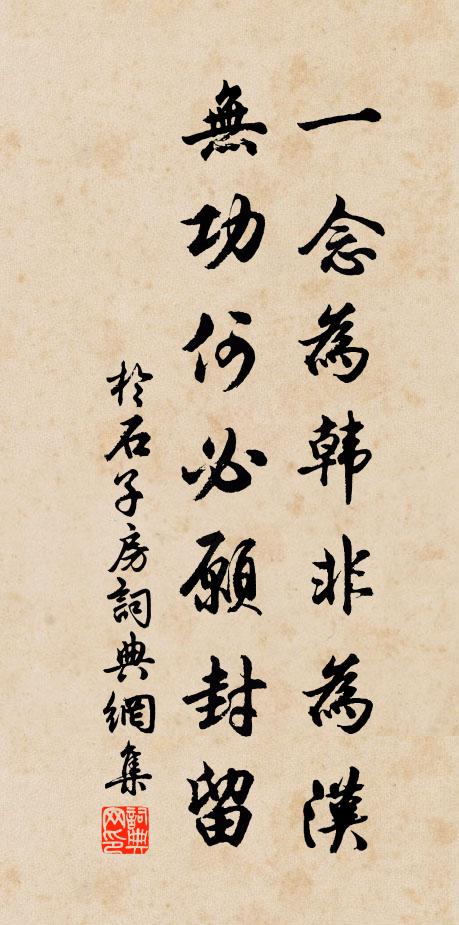 一念為韓非為漢
無功何必願封留
於石子房詞典網集
詞典网印